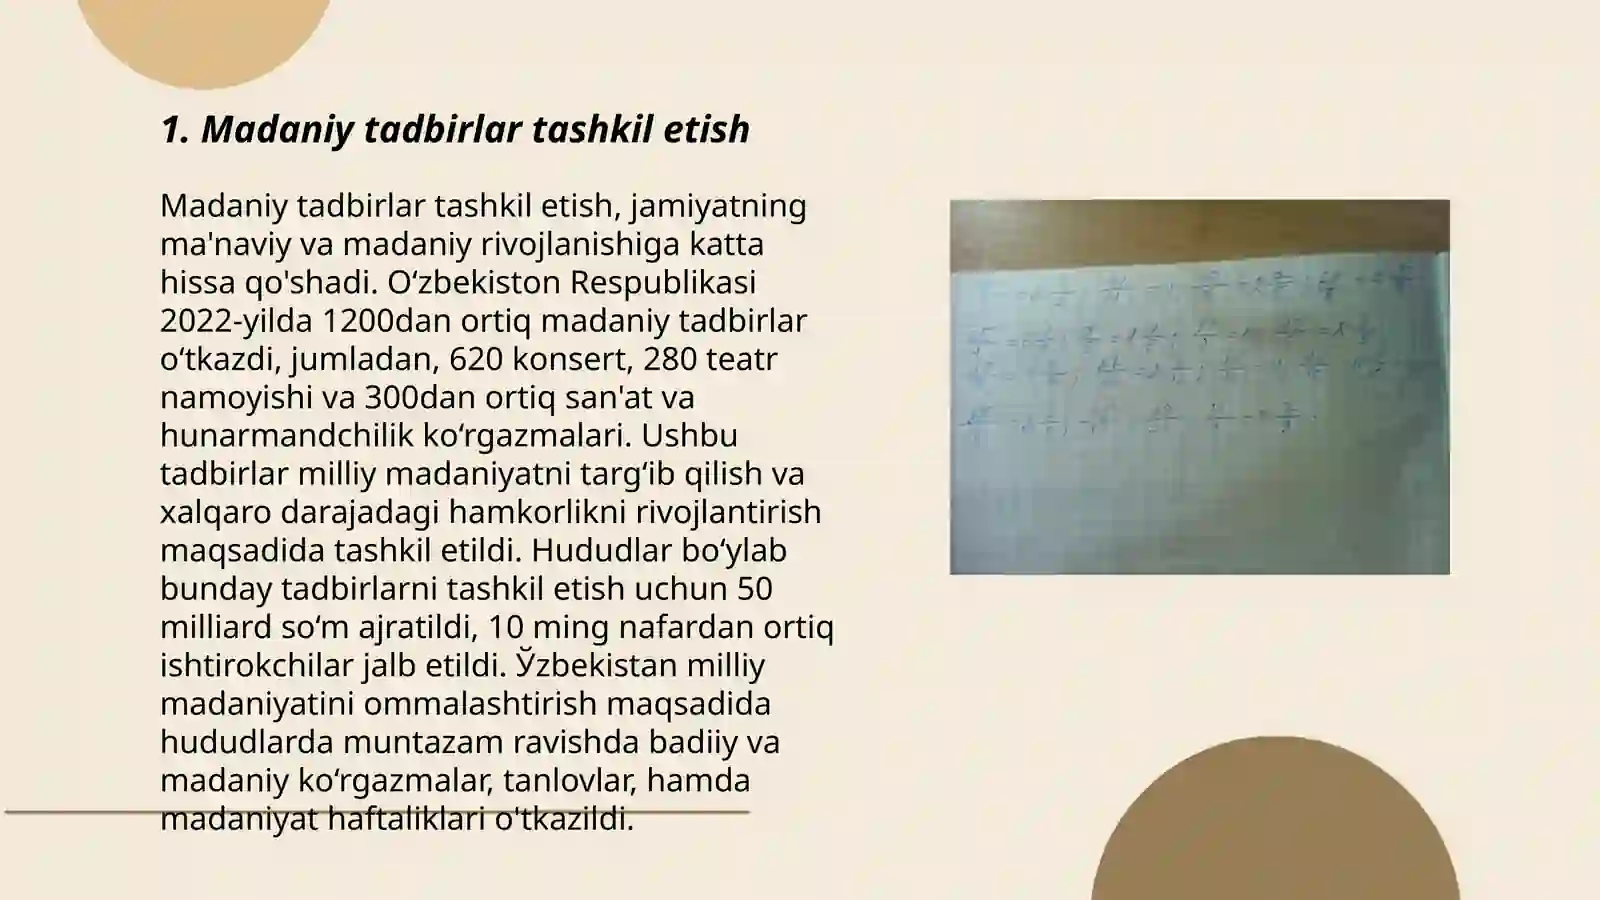 1. Madaniy tadbirlar tashkil etish
Madaniy tadbirlar tashkil etish, jamiyatning
ma'naviy va madaniy rivojlanishiga katta
hissa qo'shadi. O‘zbekiston Respublikasi
2022-yilda 1200dan ortiq madaniy tadbirlar
o‘tkazdi, jumladan, 620 konsert, 280 teatr
namoyishi va 300dan ortiq san'at va
hunarmandchilik ko‘rgazmalari. Ushbu
tadbirlar milliy madaniyatni targ‘ib qilish va
xalqaro darajadagi hamkorlikni rivojlantirish
maqsadida tashkil etildi. Hududlar bo‘ylab
bunday tadbirlarni tashkil etish uchun 50
milliard so‘m ajratildi, 10 ming nafardan ortiq
ishtirokchilar jalb etildi. Ўzbekistan milliy
madaniyatini ommalashtirish maqsadida
hududlarda muntazam ravishda badiiy va
madaniy ko‘rgazmalar, tanlovlar, hamda
madaniyat haftaliklari o‘tkazildi.